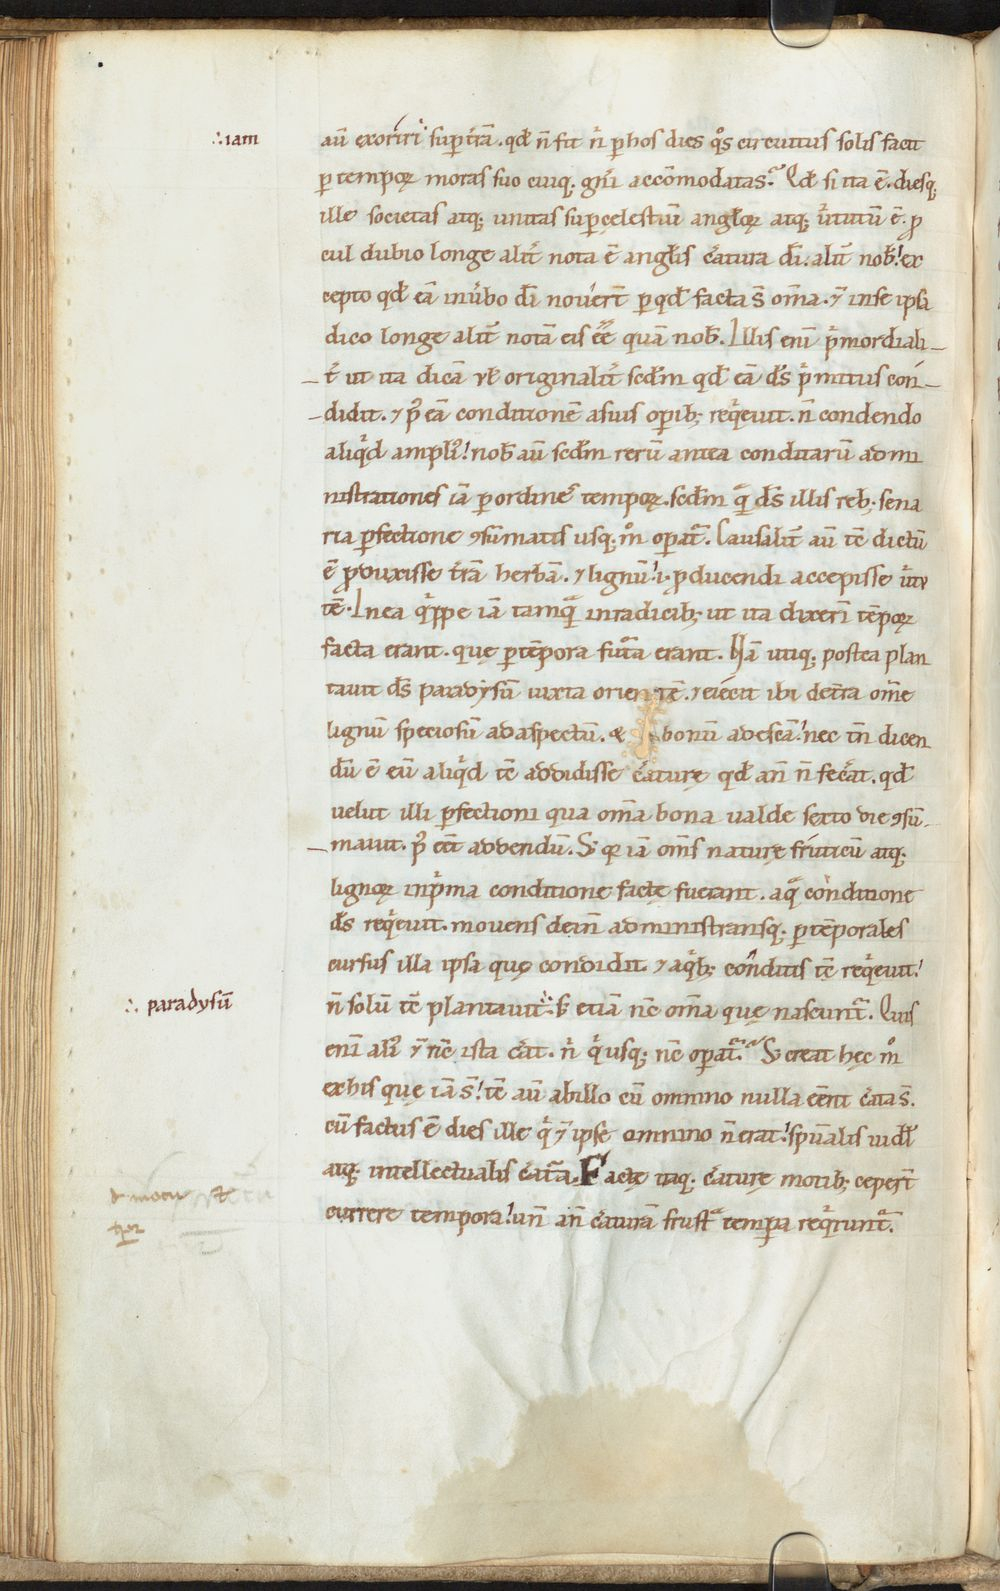 ∴iam
aū exoriri sup̄ t̄rā. qd̄ n̄ fit n̄ p̄ hos dies q̊s circuitus solis facit
p̄ tempoꝝ moras suo cuiq; gn̄i accōmodatas. Qd̄ si ita ē. diesq;
ille societas atq; unitas sup̄cęlestiū angl̄oꝝ atq; ůtutū ē. ꝓ
cul dubio longe alit̄ nota ē angl̄is c̄atura dī. alit̄ nob̄! ex
cepto qd̄ eā in ůbo dī nover̄t p̄ qd̄ facta s̄ om̄a. ⁊ in se ipsa
dico longe alit̄ notā eis ēē quā nob̄. Illis enī p̄mordiali
t̄ ut ita dicā ul̄ originalit̄ scd̄m qd̄ eā ds̄ p̄mitus con
didit. ⁊ p̄ eā conditionē a suis opib; req̇evit. n̄ condendo
aliq̇d ampli᷒! nob̄ aū scd̄m rerū antea conditarū admi
nistrationes iā p̄ ordinēs tempoꝝ. scd̄m qā ds̄ illis reb; sena
ria p̄fectione ꝯsūmatis usq; m̊ opat᷑. Causalit̄ aū tē dictū
ē ꝓduxisse t̄rā herbā. ⁊ lignū! i. ꝓducendi accepisse ůtu
tē. In ea q̇ppe iā tamquā in radicib; ut ita dixerī tēpoꝝ
facta erant. quę p̄ tēpora fut̄a erant. Nā utiq; postea plan
tavit ds̄ paradysū iuxta orientē. ⁊ eiecit ibi de t̄ra om̄e
lignū speciosū ad aspectū. & bonū ad escā! nec tn̄ dicen
dū ē eū aliq̇d tē addidisse c̄aturę qd̄ an̄ n̄ fec̄at. qd̄
velut illi p̄fectioni qua om̄a bona ualde sexto die ꝯsū
mavit. p᷒ eēt addendū. S; qꝛ iā om̄s naturę fruticū atq;
lignoꝝ in p̄ma conditione factę fuerant. a qā conditione
ds̄ req̇evit. movens dein̄ administransq; p̄ tēporales
cursus illa ipsa quę condidit ⁊ a q̇b; conditis tē req̇evit!
∴ paradysū
n̄ solū tē plantavit ∴ s; etiā nc̄ om̄a quę nascunt᷑. Quis
enī ali᷒ ⁊ nc̄ ista c̄at. n̄ q̇ usq; nc̄ opat᷑. S; creat hęc m̊
ex his quę iā s̄! tē aū ab illo cū omnino nulla eēnt c̄ata s̄.
cū factus ē dies ille q̇ ⁊ ipse omnino n̄ erat! sp̄ualis uidl̄
atq; intellectualis c̄at᷑a. Factę itaq; c̄aturę motib; ceper̄t
currere tempora! un̄ an̄ c̄aturā frustā tempora req̇runt᷑.